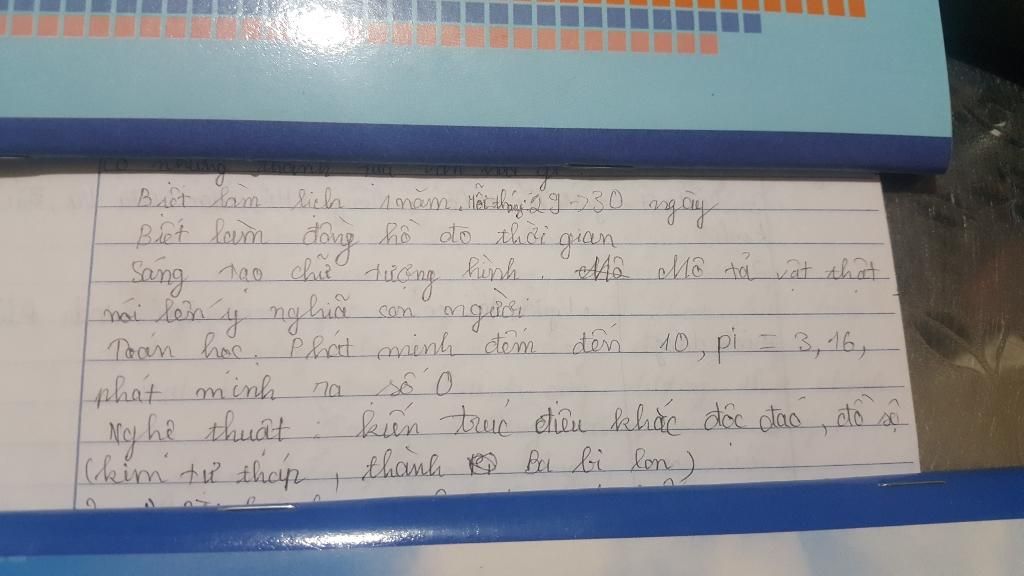 Biết làm lịch 1 năm. Mỗi tháng 29→30 ngày
Biết làm đồng hồ đo thời gian
Sáng tạo chữ tượng hình. Mô tả vật thật
nói lên ý nghĩa con người
Toán học. Phát minh đếm đến 10, pi = 3,16,
phát minh ra số 0
Nghệ thuật : kiến trúc điêu khắc độc đáo, đồ sộ
(kim tự tháp, thành Ba bi lon)